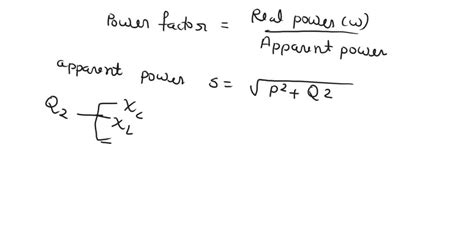 Power factor = Real power (w) / Apparent power
apparent power s = √P² + Q2
Q2
Xc
XL